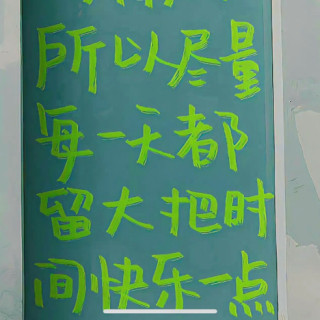 所以尽量
每一天都
留大把时
间快乐一点